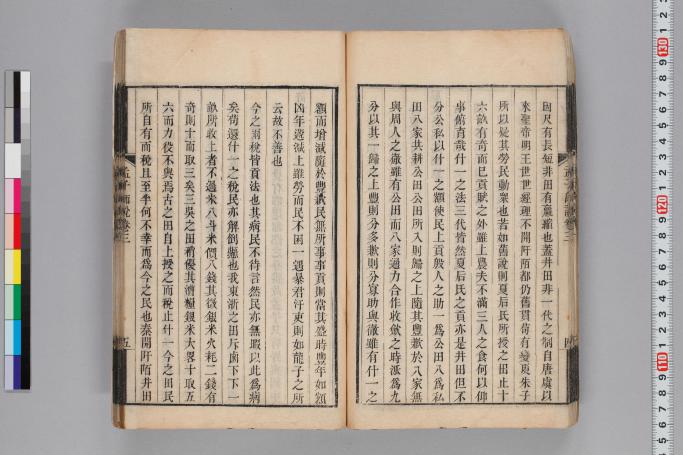 因尺有長短非田有廣縮也蓋井田非一代之制自唐虞以
來聖帝明王世世經理不開阡陌都仍舊貫苟有變更朱子
所以疑其勞民動衆也若如舊說則夏后氏所授之田止十
六畝有奇而已貢賦之外雖上農夫不滿三人之食何以仰
事俯育哉什一之法三代皆然夏后氏之貢亦是井田但不
分公私以什一之額使民上貢殷人之助一爲公田八爲私
田八家共耕公田公田所入則歸之上隨其豐歉於八家無
與周人之徹雖有公田而八家通力合作收斂之時漲爲九
分以其一歸之上豐則分多歉則分寡助與徹雖有什一之
額而增減廢於豐歉民無所事事貢則當其盛時豐年如額
凶年遞減上雖勞而民不困一遇暴君汙吏則如龍子之所
云故不善也
今之兩稅皆貢法也其病民不待言然民亦無暇以此爲病
矣苟還什一之稅民亦解倒懸也我東浙之田斥鹵下下一
畝所收上者不過米八斗米價八錢其徵銀米火耗二錢有
奇則十而取三矣三吳之田稍優其漕糧銀米大畧十取五
六而力役不與焉古之田自上授之而稅止什一今之田民
所自有而稅且至半何不幸而爲今之民也秦開阡陌井田
孟子師說卷三
五